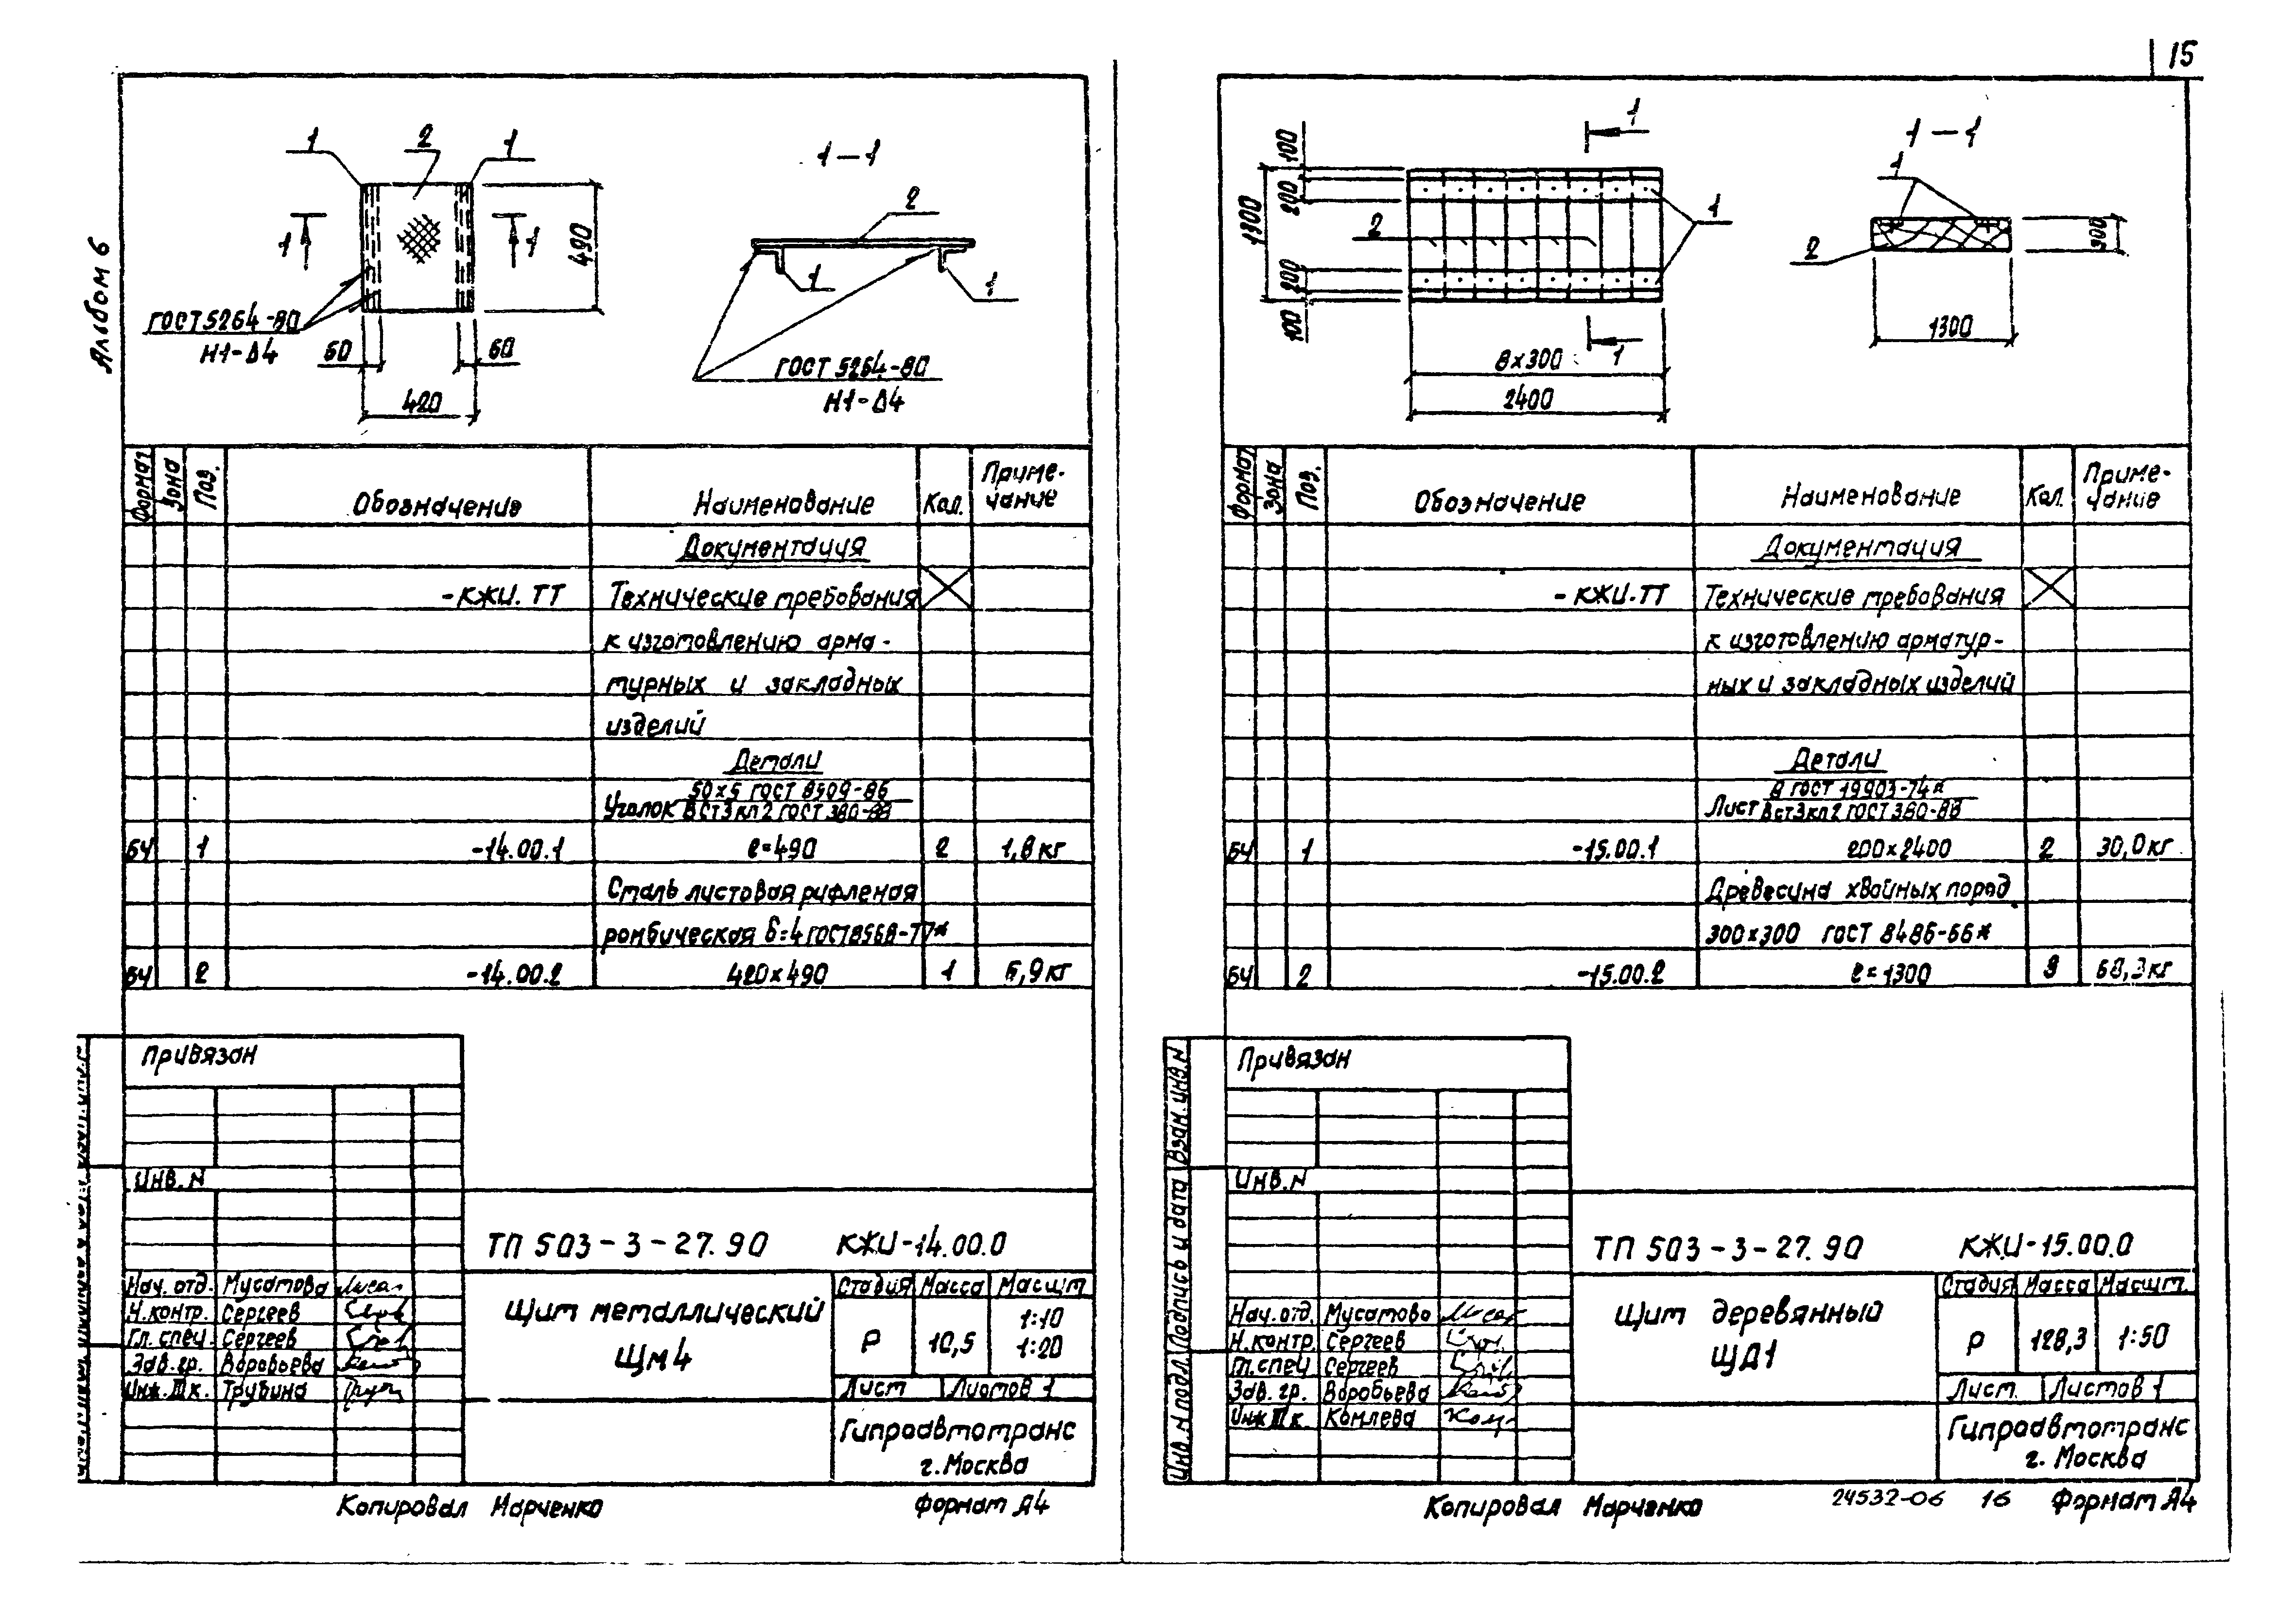 15
Альбом 6
1
2
1
1
1
490
ГОСТ 5264-80
Н1-Δ4
50
60
420
1-1
2
1
1
ГОСТ 5264-80
Н1-Δ4
Формат
Зона
Поз.
Обозначение
Наименование
Кол.
Приме-
чание
Документация
-КЖИ.ТТ
Технические требования
к изготовлению арма-
турных и закладных
изделий
Детали
50х5 ГОСТ 8509-86
Уголок ВСт3кп2 ГОСТ 380-88
БЧ 1 -14.00.1 ℓ=490 2 1,8кг
Сталь листовая рифленая
ромбическая δ=4 ГОСТ 8568-77*
БЧ 2 -14.00.2 420х490 1 6,9кг
Привязан
Инв.N
ТП 503-3-27.90 КЖИ-14.00.0
Нач. отд. Мусатова
Н.контр. Сергеев
Гл. спец. Сергеев
Зав.гр. Воробьева
Инж. III к. Трубина
Щит металлический
Щм4
Стадия Масса Масшт
Р 10,5 1:10
1:20
Лист Листов 1
Гипроавтотранс
г. Москва
Копировал Марченко
Формат А4
1
1
100
200
1300
200
100
2
1
8х300
2400
1-1
1
2
300
1300
Формат
Зона
Поз.
Обозначение
Наименование
Кол.
Приме-
чание
Документация
-КЖИ.ТТ
Технические требования
к изготовлению арматур-
ных и закладных изделий
Детали
8 ГОСТ 19903-74*
Лист ВСт3кп2 ГОСТ 380-88
БЧ 1 -15.00.1 200х2400 2 30,0кг
Древесина хвойных пород
300х300 ГОСТ 8486-66*
БЧ 2 -15.00.2 ℓ=1300 68,3кг
Привязан
Инв.N
Взам.инв.N
Подпись и дата
Инв.N подл.
ТП 503-3-27.90 КЖИ-15.00.0
Нач. отд. Мусатова
Н.контр. Сергеев
Гл.спец Сергеев
Зав. гр. Воробьева
Инж III к. Комлева
Щит деревянный
ЩД1
Стадия Масса Масшт.
Р 128,3 1:50
Лист. Листов 1
Гипроавтотранс
г. Москва
Копировал Марченко
24532-06 16
Формат А4